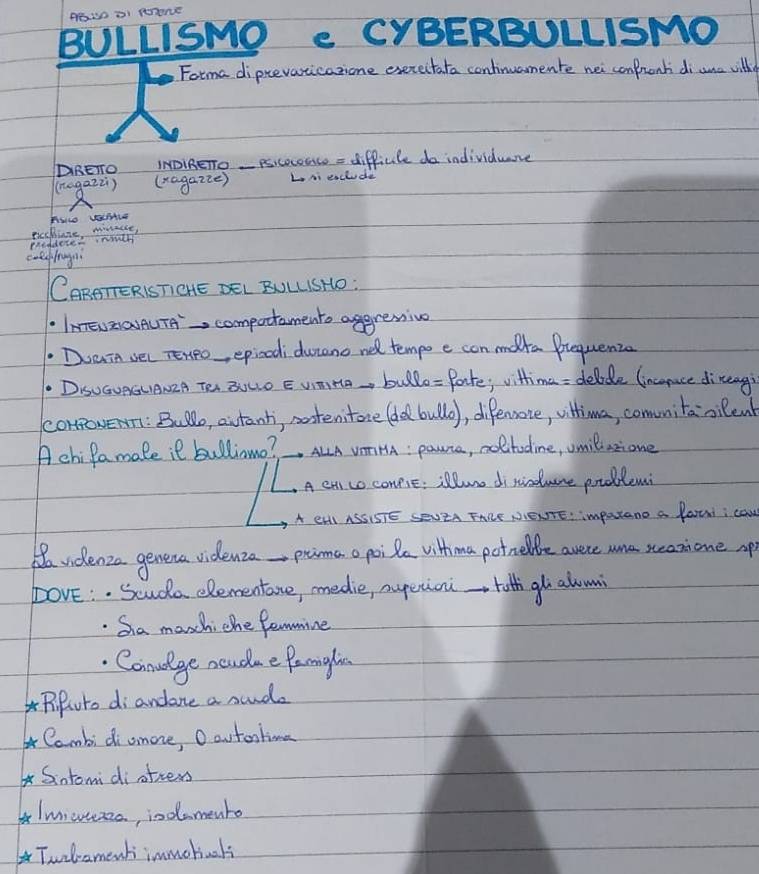 ABUSO DI POTERE
BULLISMO e CYBERBULLISMO
Forma di prevaricazione esercitata continuamente nei confronti di una
DIRETTO INDIRETTO – PSICOLOGICO = difficile da individuare
(ragazzi) (ragazze) si esclude
FISICO VERBALE
picchiare, minacce,
prendere insulti
calci/pugni
CARATTERISTICHE DEL BULLISMO:
• INTENZIONALITÀ → comportamento aggressivo
• DURATA NEL TEMPO → episodi durano nel tempo e con molta frequenza
• DISUGUAGLIANZA TRA BULLO E VITTIMA → bullo = forte; vittima = debole (incapace di reagi
COMPONENTI: Bullo, aiutanti, sostenitore (del bullo), difensore, vittima, comunità silent
A chi fa male il bullismo? → ALLA VITTIMA: paura, solitudine, umiliazione
→ A CHI LO COMPIE: illuso di risolvere problemi
→ A CHI ASSISTE SENZA FARE NIENTE: imparano a farsi i
La violenza genera violenza → prima o poi la vittima potrebbe avere una reazione
DOVE: • Scuola elementare, medie, superiori → tutti gli alunni
• Sia maschi che femmine
• Coinvolge scuola e famiglia
★ Rifiuto di andare a scuola
★ Cambi di umore, 0 autostima
★ Sintomi di stress
★ Insicurezza, isolamento
★ Turbamenti immotivati